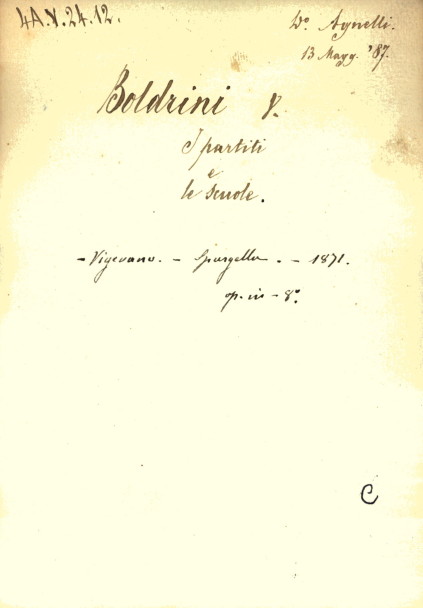 4A.V.24.12.
Do. Agnelli.
13 Magg. '87.
Boldrini
I partiti
e
le scuole.
- Vigevano. - Spargella. - 1871.
op. in - 8º.
C